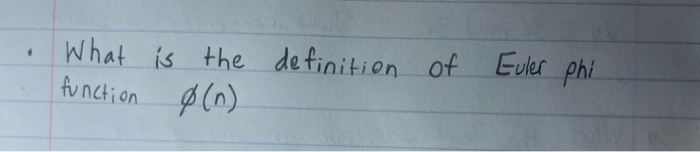 • What is the definition of Euler phi
function ϕ(n)